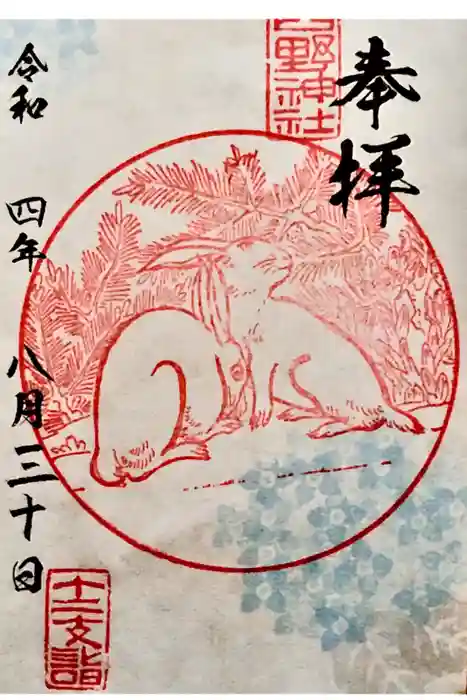 奉拝
野神社
令和 四年 八月三十日
十二支詣